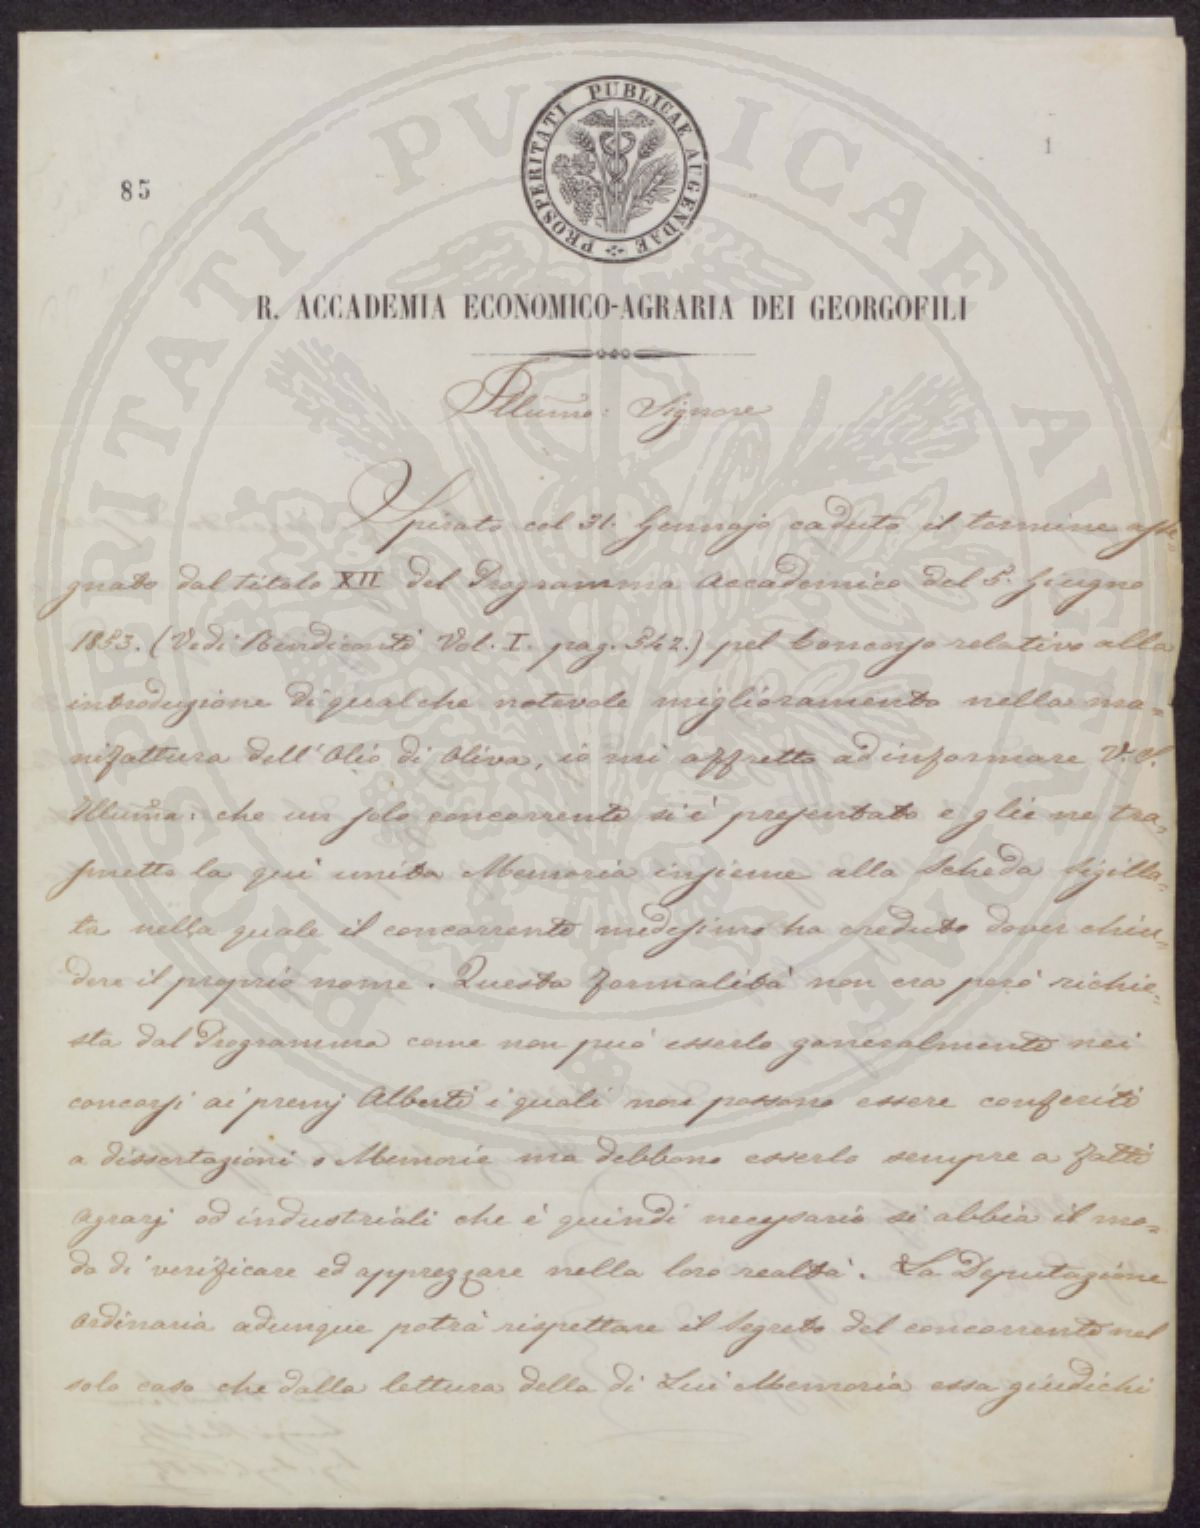 PROSPERITATI PUBLICAE AUGENDAE
85
1
R. ACCADEMIA ECONOMICO-AGRARIA DEI GEORGOFILI
Illumo: Signore
Spirato col 31. Gennajo caduto il termine asse-
gnato dal titolo XII del Programma Accademico del 5. Giugno
1853. (Vedi Rendiconti Vol. I. pag. 542.) pel Concorso relativo alla
introduzione di qualche notevole miglioramento nella ma-
nifattura dell'Olio di Oliva, io mi affretto ad informare V. S.
Illuma: che un solo concorrente si è presentato e glie ne tra-
smetto la qui unita Memoria insieme alla Scheda sigilla-
ta nella quale il concorrente medesimo ha creduto dover chiu-
dere il proprio nome. Questa formalità non era però richie-
sta dal Programma come non può esserlo generalmente nei
concorsi ai premj Alberti i quali non possono essere conferiti
a dissertazioni o Memorie ma debbono esserlo sempre a fatti
Agrarj od industriali che è quindi necessario si abbia il mo-
do di verificare ed apprezzare nella loro realtà. La Deputazione
Ordinaria adunque potrà rispettare il Segreto del concorrente nel
solo caso che dalla lettura della di Lui Memoria essa giudichi